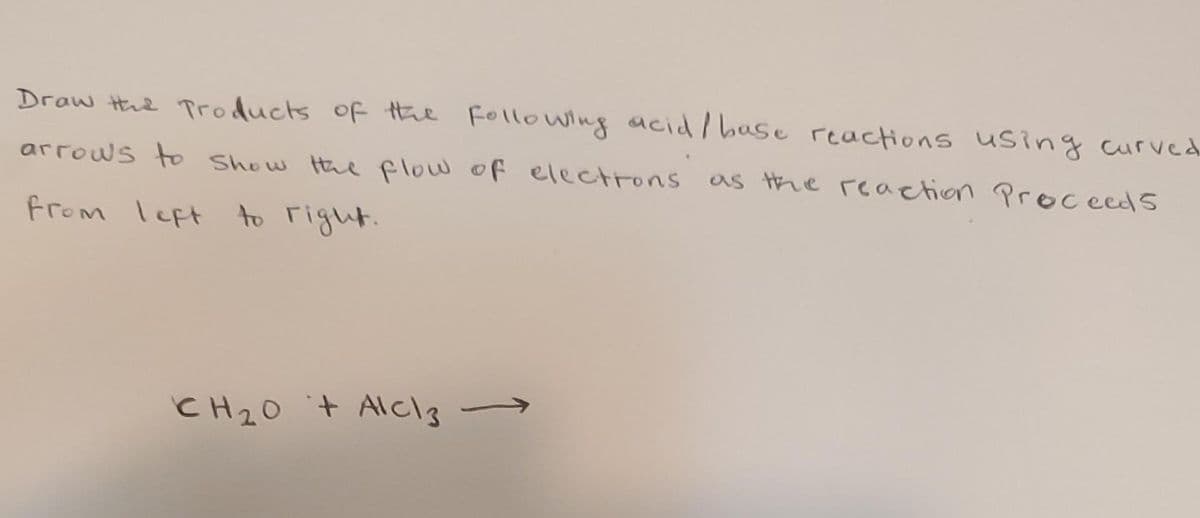 Draw the Products of the Following acid/base reactions using curved
arrows to show the flow of electrons as the reaction Proceeds
from left to right.
CH₂O + AlCl₃ →